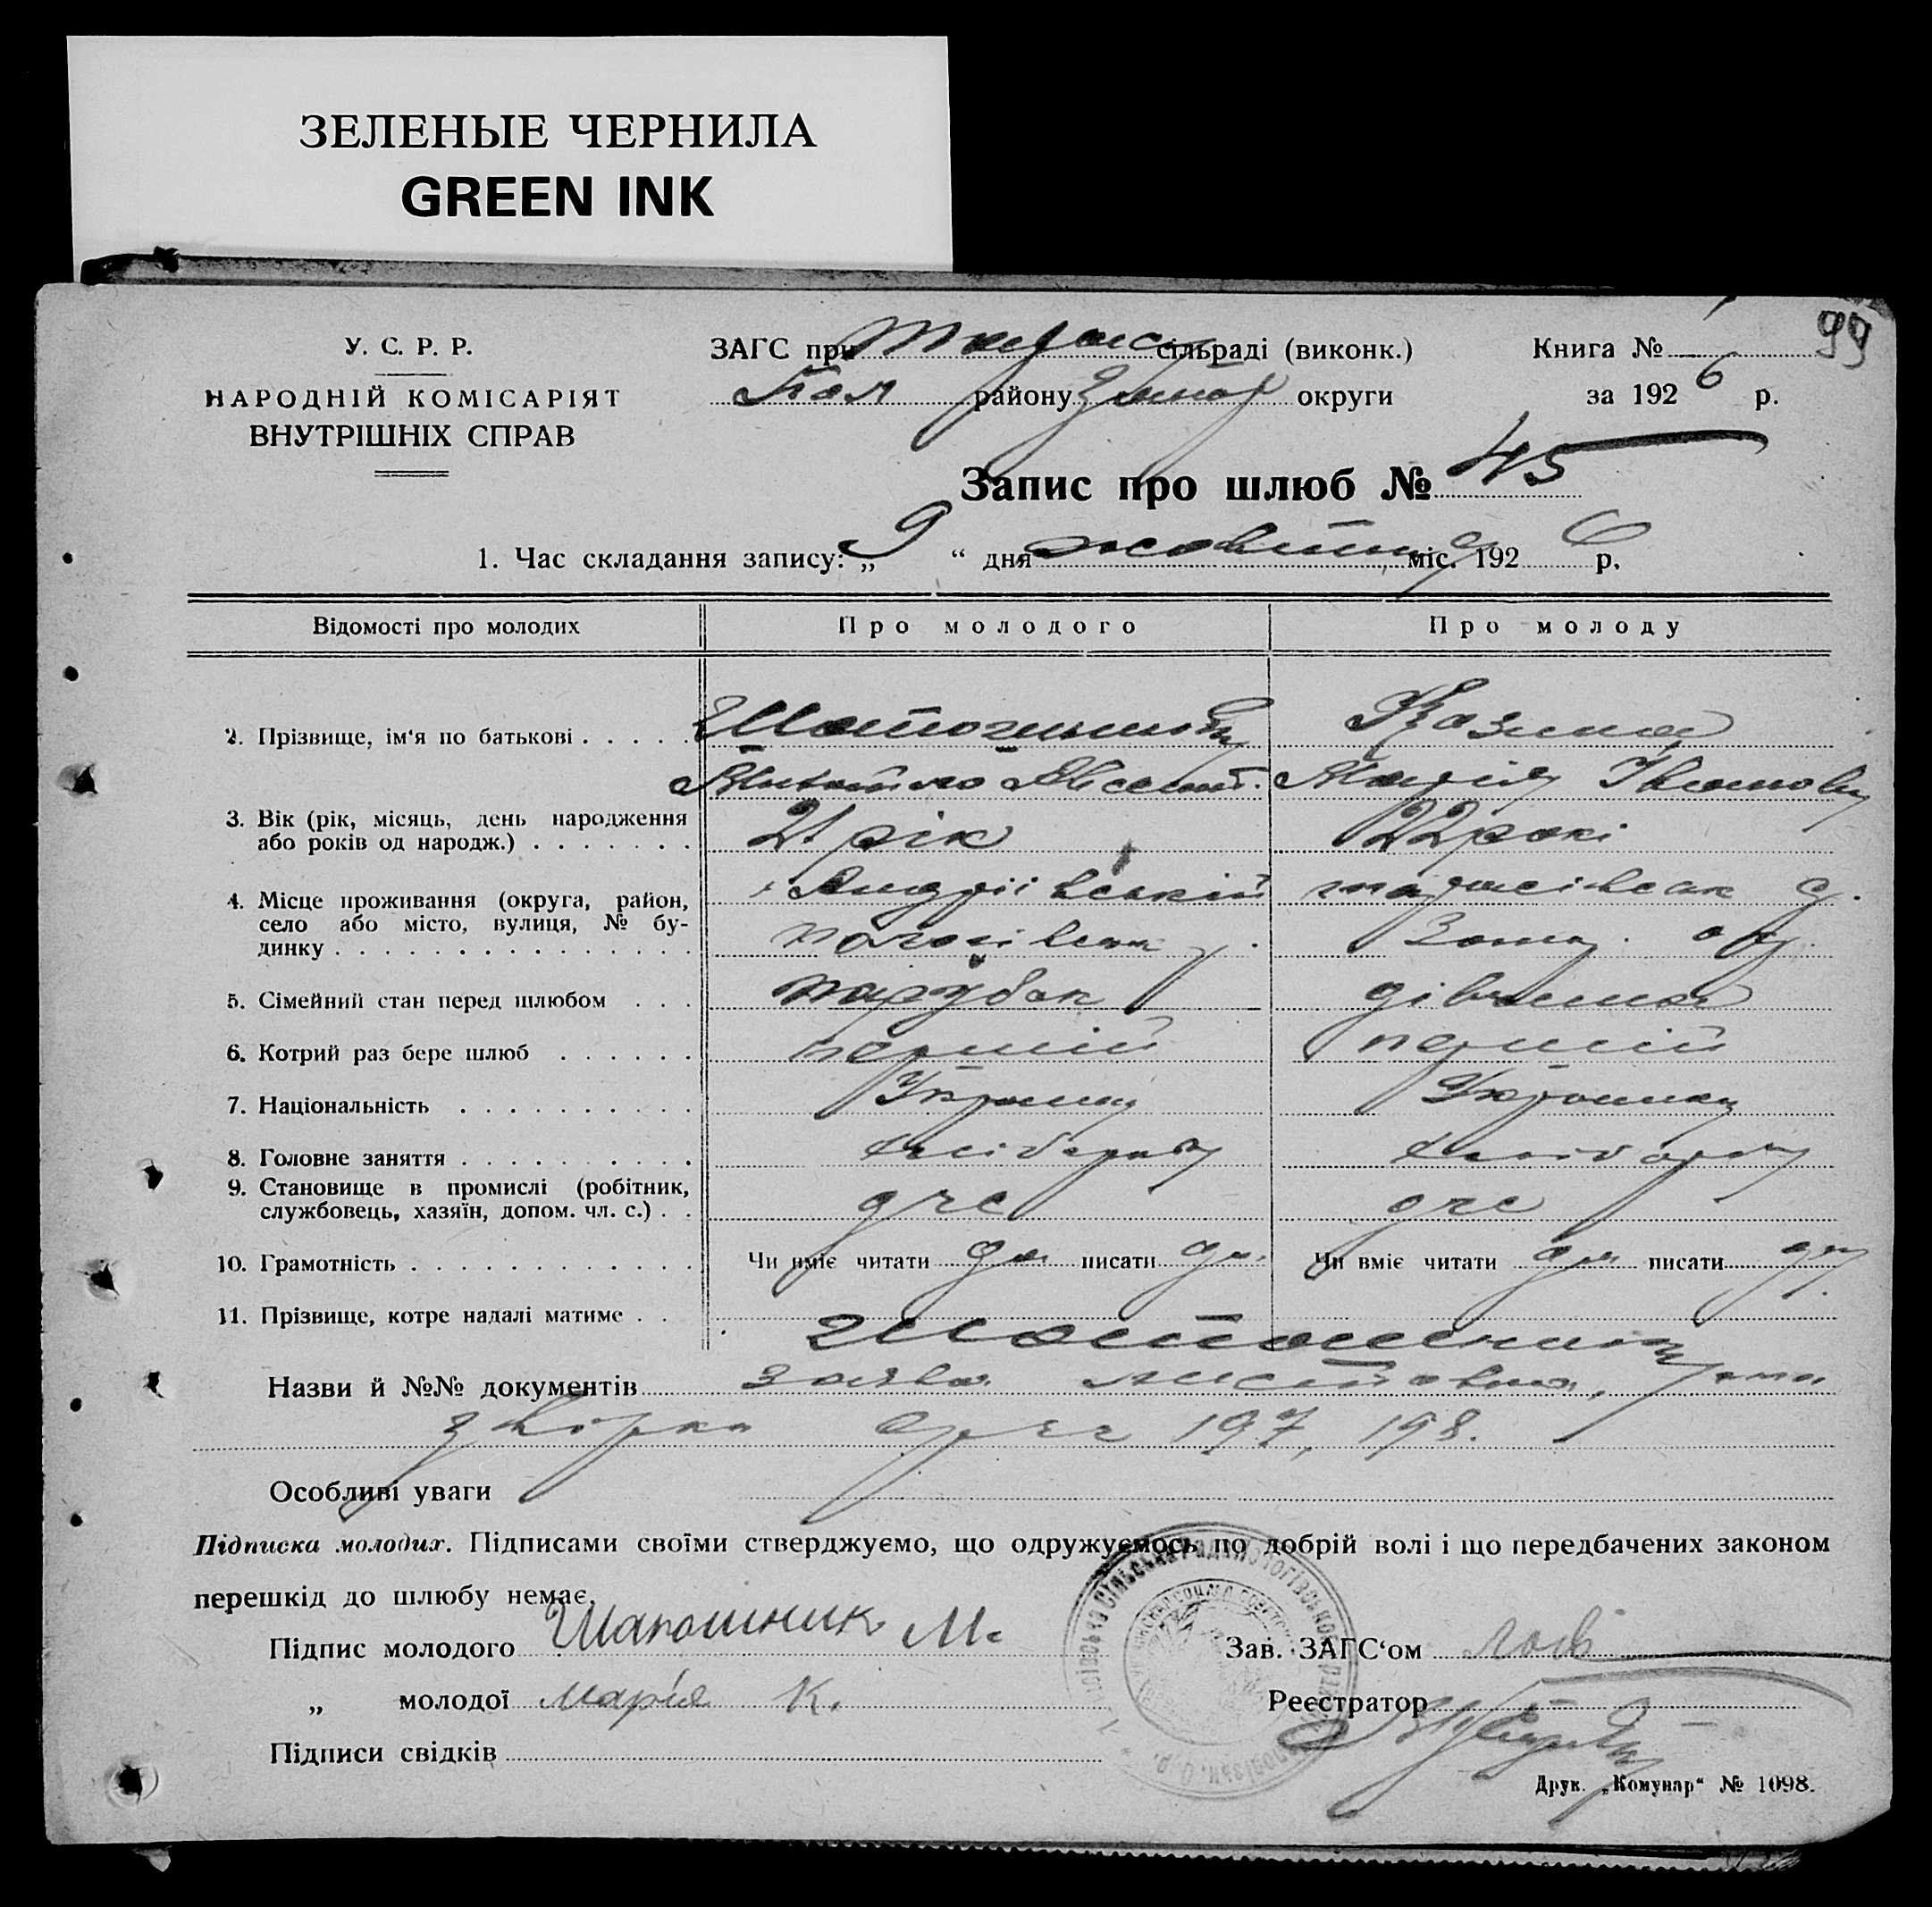 ЗЕЛЕНЫЕ ЧЕРНИЛА
GREEN INK
99
У. С. Р. Р.
НАРОДНІЙ КОМІСАРІЯТ
ВНУТРІШНІХ СПРАВ
ЗАГС при Тарас сільраді (виконк.)
Пол району Запор округи
Книга №
за 1926 р.
Запис про шлюб № 45
1. Час складання запису: „9“ дня жовтня міс. 1926 р.
Відомості про молодих
Про молодого
Про молоду
2. Прізвище, ім‘я по батькові
Марія Івановн
3. Вік (рік, місяць, день народження
або років од народж.)
21 рік
22 рокі
4. Місце проживання (округа, район,
село або місто, вулиця, № бу-
динку
Андріївській
Пологівськ р.
тарасівськ с.
Запор. окр.
5. Сімейний стан перед шлюбом
парубок
дівчина
6. Котрий раз бере шлюб
першій
першій
7. Національність
Україн
Україн
8. Головне заняття
хлібороб
хлібороб
9. Становище в промислі (робітник,
службовець, хазяїн, допом. чл. с.)
дчс
дчс
10. Грамотність
Чи вміє читати да писати да
Чи вміє читати да писати да
11. Прізвище, котре надалі матиме
Назви й №№ документів заява
197, 198.
Особливі уваги
Підписка молодих. Підписами своїми стверджуємо, що одружуємось по добрій волі і що передбачених законом
перешкід до шлюбу немає.
Підпис молодого Шапошник М.
„ молодої Марія К.
Підписи свідків
Зав. ЗАГС‘ом
Реєстратор
Друк. „Комунар“ № 1098.